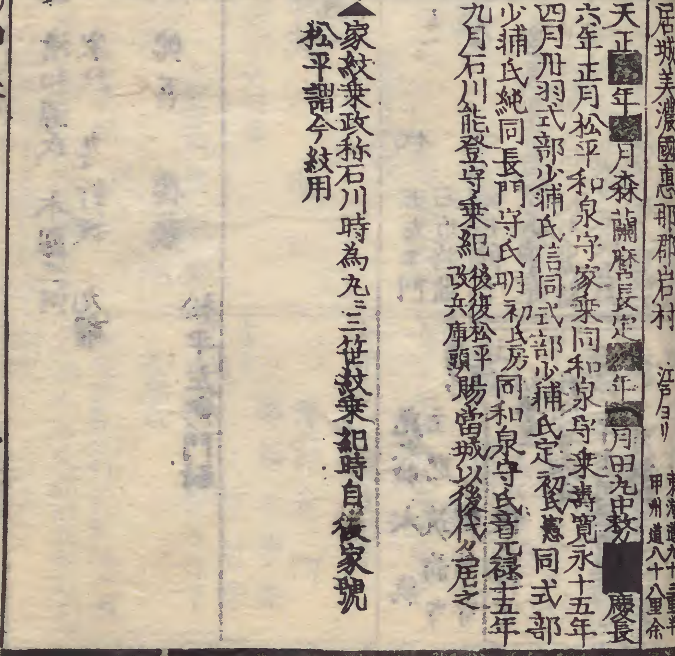 居城美濃國惠那郡岩村 江戸ヨリ 東海道九十二里半
甲州道八十八里余
天正 年 月森蘭麿長定 年 月田丸中務 慶長
六年正月松平和泉守家乗同和泉守乗壽寛永十五年
四月丹羽式部少輔氏信同式部少輔氏定初氏憙同式部
少輔氏純同長門守氏明初氏房同和泉守氏音元禄十五年
九月石川能登守乗紀後復松平
改兵庫頭賜當城以後代々居之
▲家紋乗政称石川時為丸ニ三笹紋乗紀時自復家號
松平謂今紋用